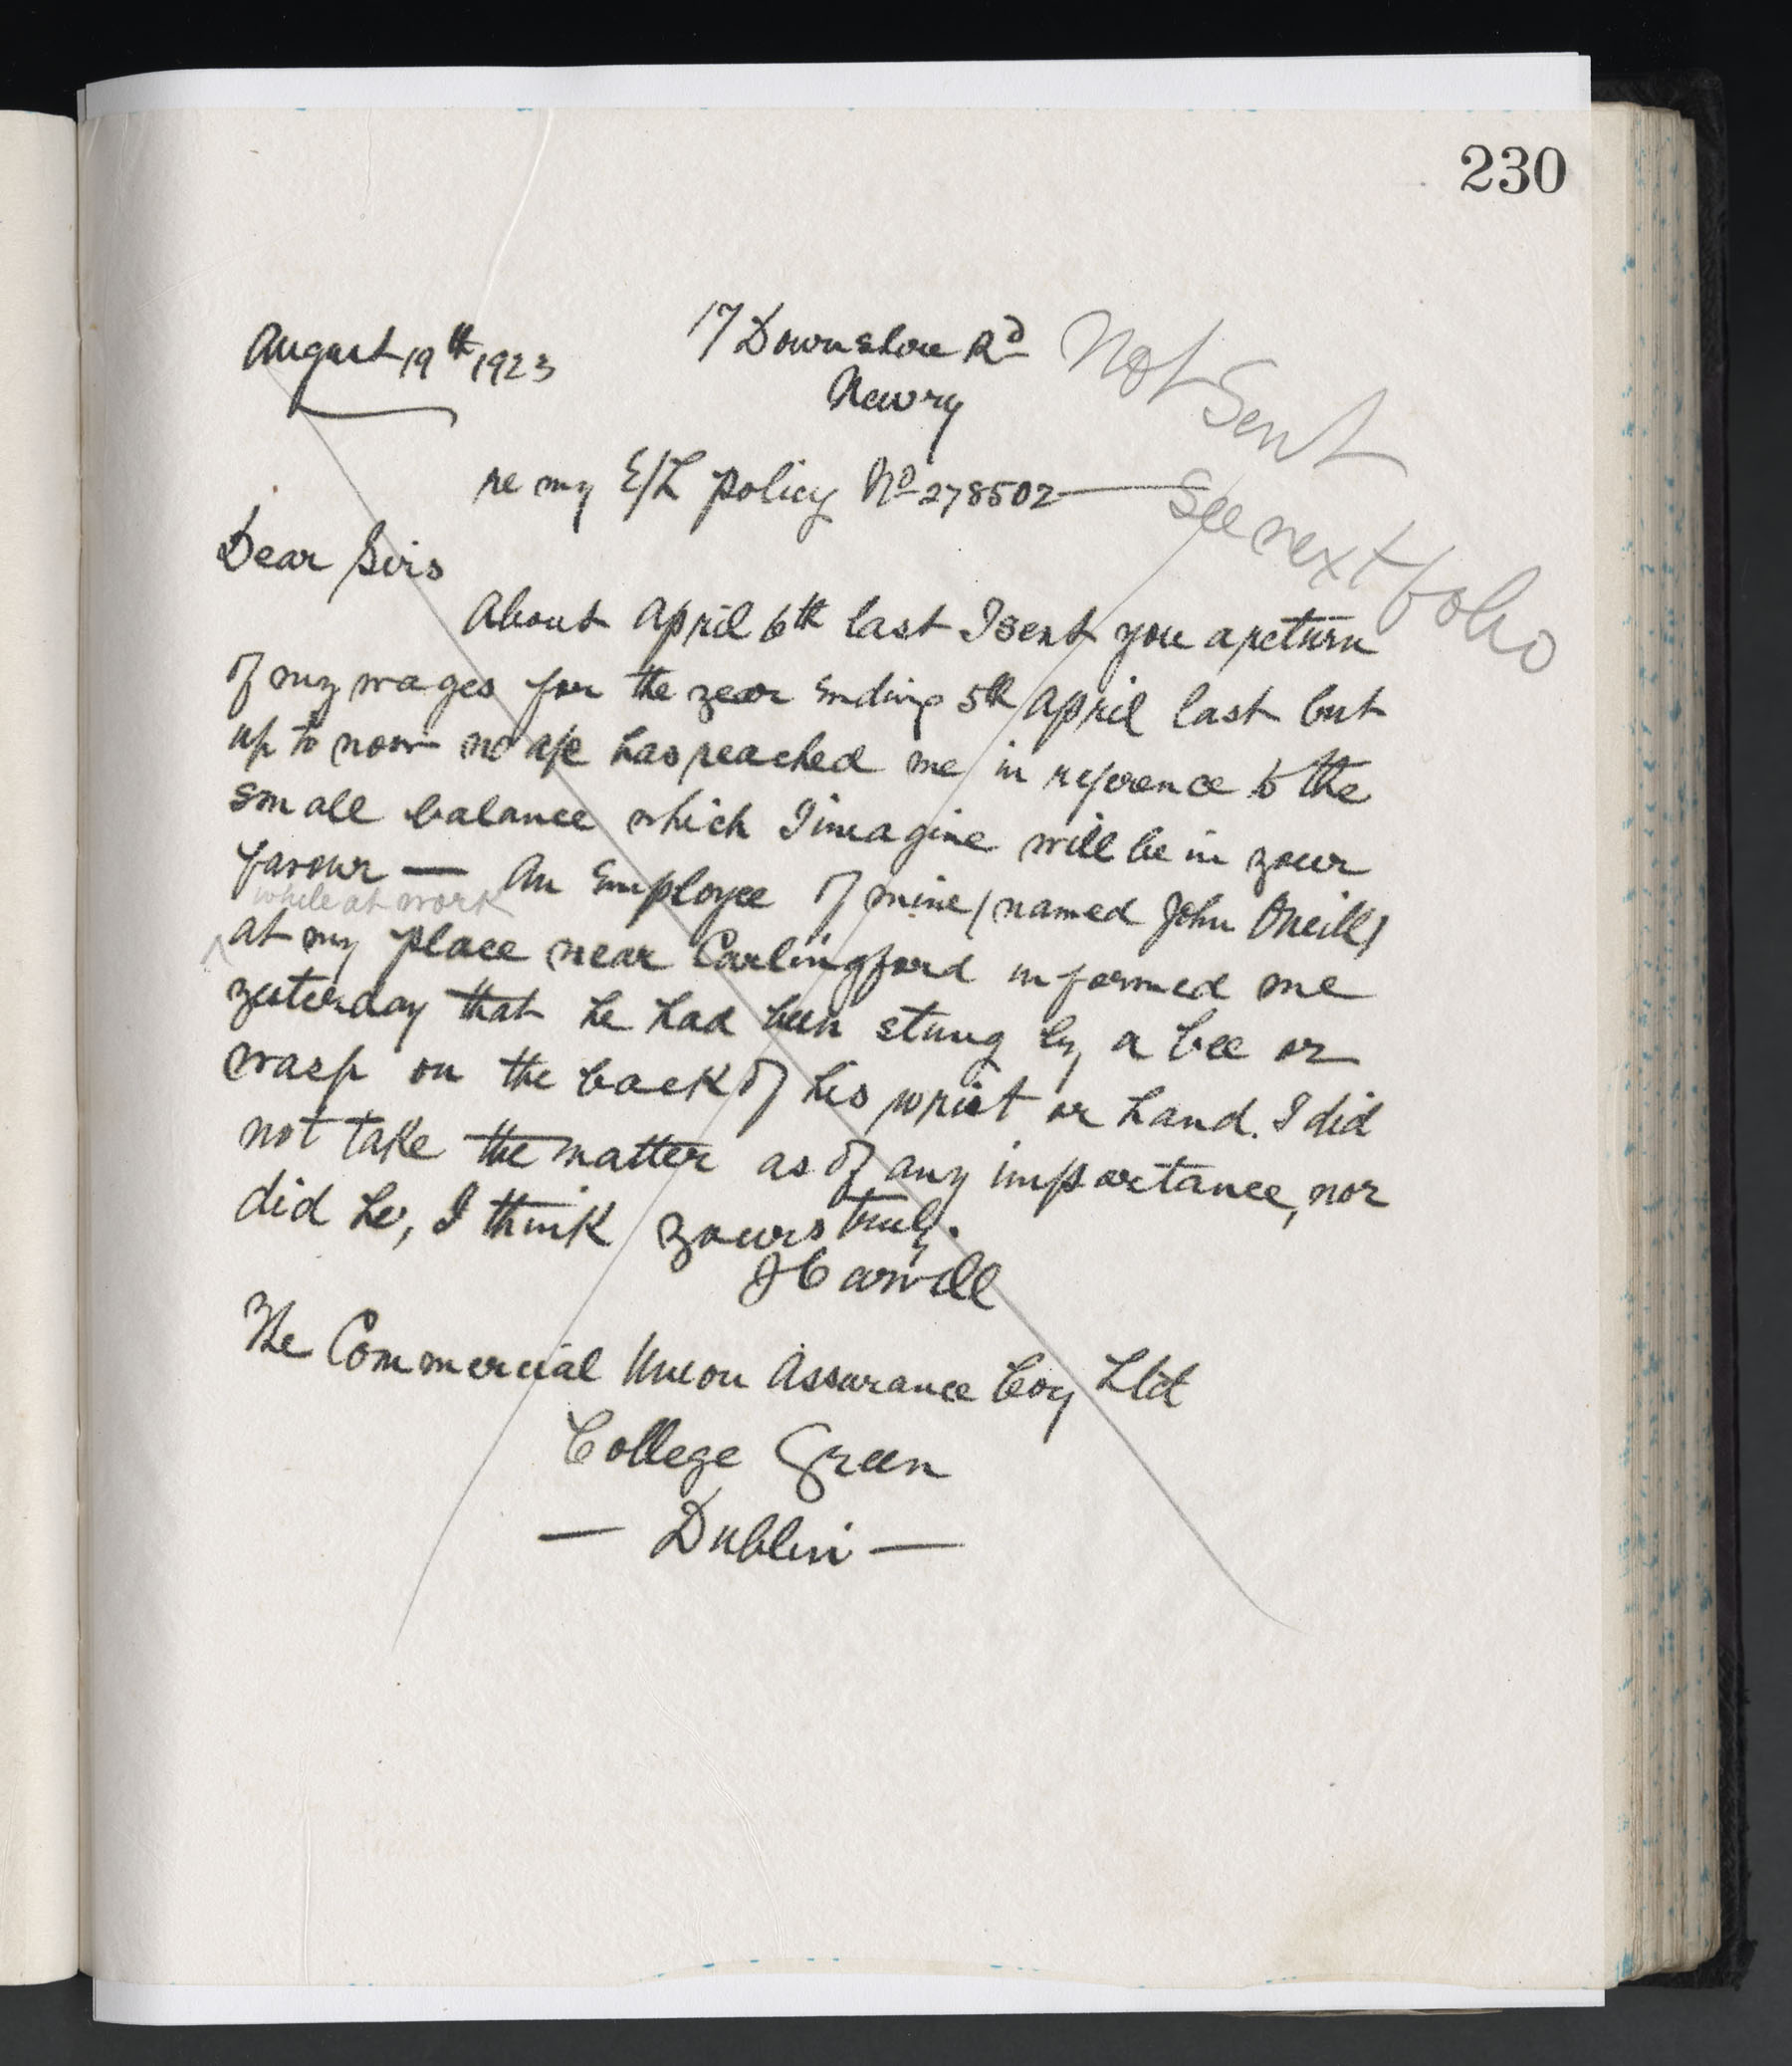 230
August 19th, 1923
17 Downshire Rd
Newry
Not Sent
re my E/L policy No 278502
See next folio
Dear Sirs
About April 6th last I sent you a return
of my wages for the year ending 5th April last but
up to now no a/c has reached me in reference to the
small balance which I imagine will be in your
favour — An Employee of mine (named John ONeill)
while at work
at my place near Carlingford informed me
yesterday that he had been stung by a bee or
wasp on the back of his wrist or hand. I did
not take the matter as of any importance, nor
did he, I think yours truly.
J Carvill
The Commercial Union Assurance Coy Ltd
College Green
— Dublin —